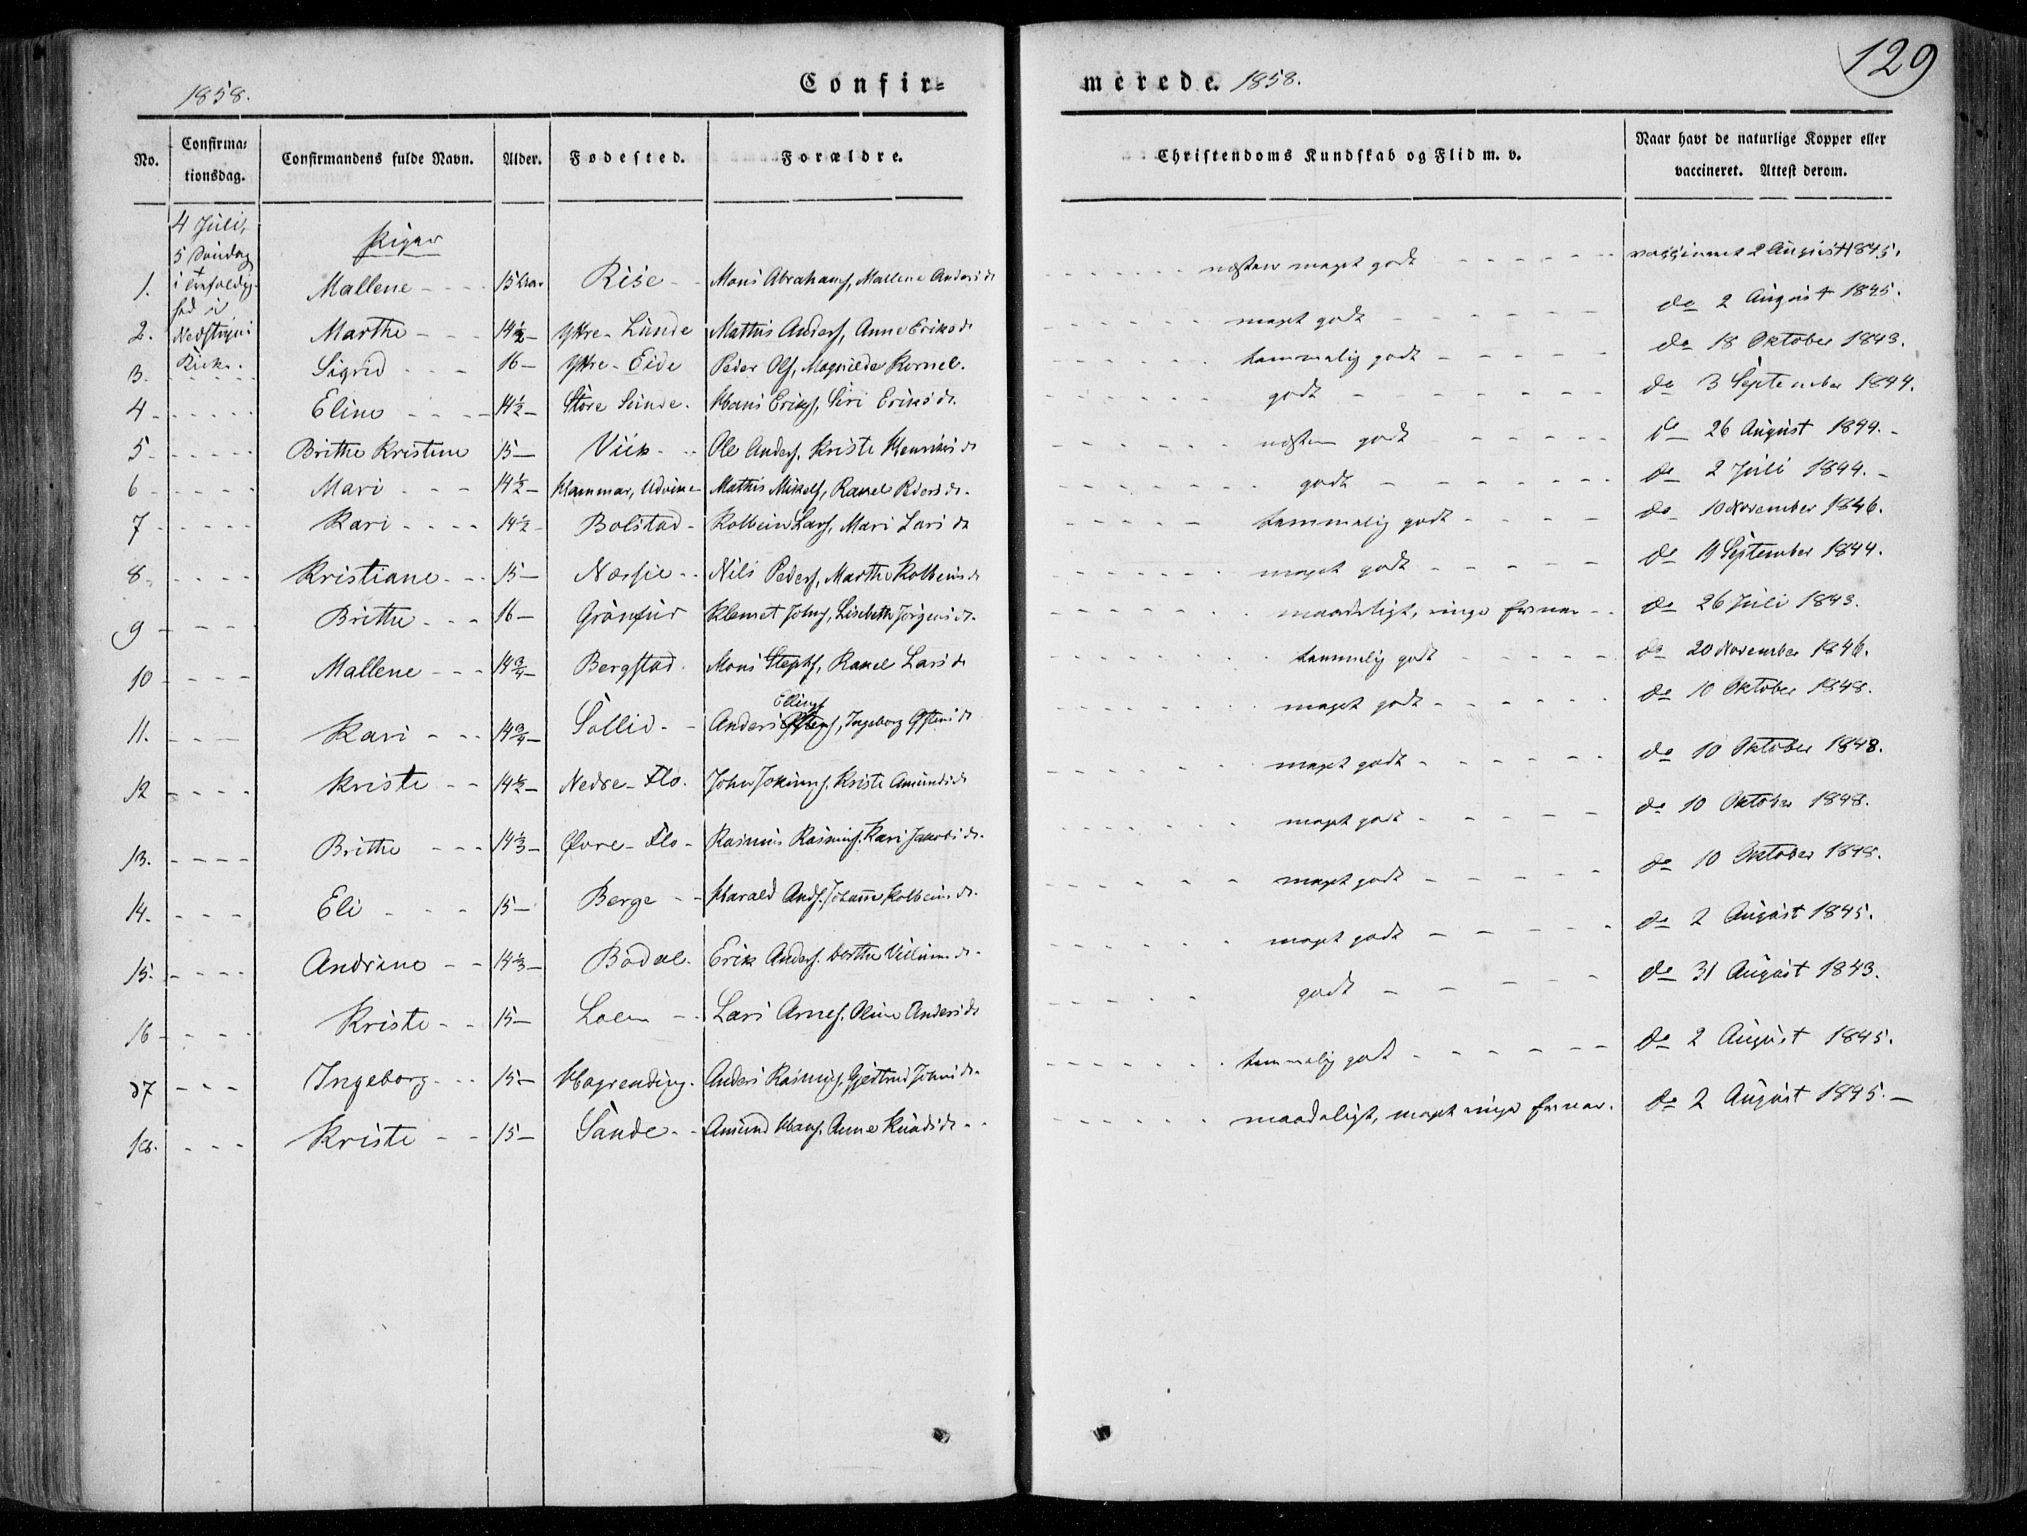 129
1858. Confir= merede. 1858.
No. Confirma= tionsdag. Confirmandens fulde Navn. Alder. Fødested. Forældre. Christendoms Kundskab og Flid m. v. Naar havt de naturlige Kopper eller vaccineret. Attest derom.
4 Juli,
5 Søndag
i
Kirke.
Piger
1. Mallene 15 Rise Mons Abrahams, Mallene Anders d. næsten meget godt 2 August 1845.
2. Marthe 14½ Yttre-Lunde Mathis Anders, Anne Eriks d. meget godt do 2 August 1845.
3. Sigrid 16 Yttre-Eide Peder Ols, Magnilde Kornel. tammelig godt do 18 Oktober 1843.
4 Eline 14½ Store Sunde. Hans Eriks, Siri Eriks d. godt do 3 September 1844.
5 Brithe Kristine 15 Viik Ole Anders, Kriste Henriks d. næsten godt do 26 August 1844.
6 Mari 14½ Hammar, Udvine Mathis Mikels, Rakel Peders d. godt do 2 Juli 1844.
7 Kari 14½ Bolstad Kolbein Lars, Mari Lars d. tammelig godt do 10 November 1846.
8 Kristiane 15 Næssie Nils Peders, Marthe Kolbeins d. meget godt do 11 September 1844.
9 Brithe 16 Grönfur Klemet Johns, Lisbeth Jörgens d. maadeligt, ringe do 26 Juli 1843.
10 Mallene 14¾ Bergstad Mons Stephs, Rakel Lars d. tammelig godt do 20 November 1846.
11. Kari 14¾ Sollid Anders Ellings, Ingeborg d. meget godt do 10 Oktober 1848.
12 Kriste 14½ Nedre-Flo. John Jokums, Kriste Amunds d. meget godt do 10 Oktober 1848.
13. Brithe 14⅓ Øvre-Flo Rasmus Rasmus, Kari Jakobs d. meget godt do 10 Oktober 1848.
14. Eli 15 Berge Harald Ands, Johanne Kolbeins d. meget godt do 10 Oktober 1848.
15. Andrine 14⅓ Bödal. Erik Anders. Dorthe Villums d. meget godt do 2 August 1845.
16 Kriste 15 Loen Lars Arnes. Oline Anders d. godt do 31 August 1843.
17 Ingeborg 15 Hogrending. Anders Rasmus, Gjertrud Johns d. tammelig godt do 2 August 1845.
18. Kriste 15 Sande Amund Hans. Anne Knuds d. maadeligt, meget ringe do 2 August 1845.